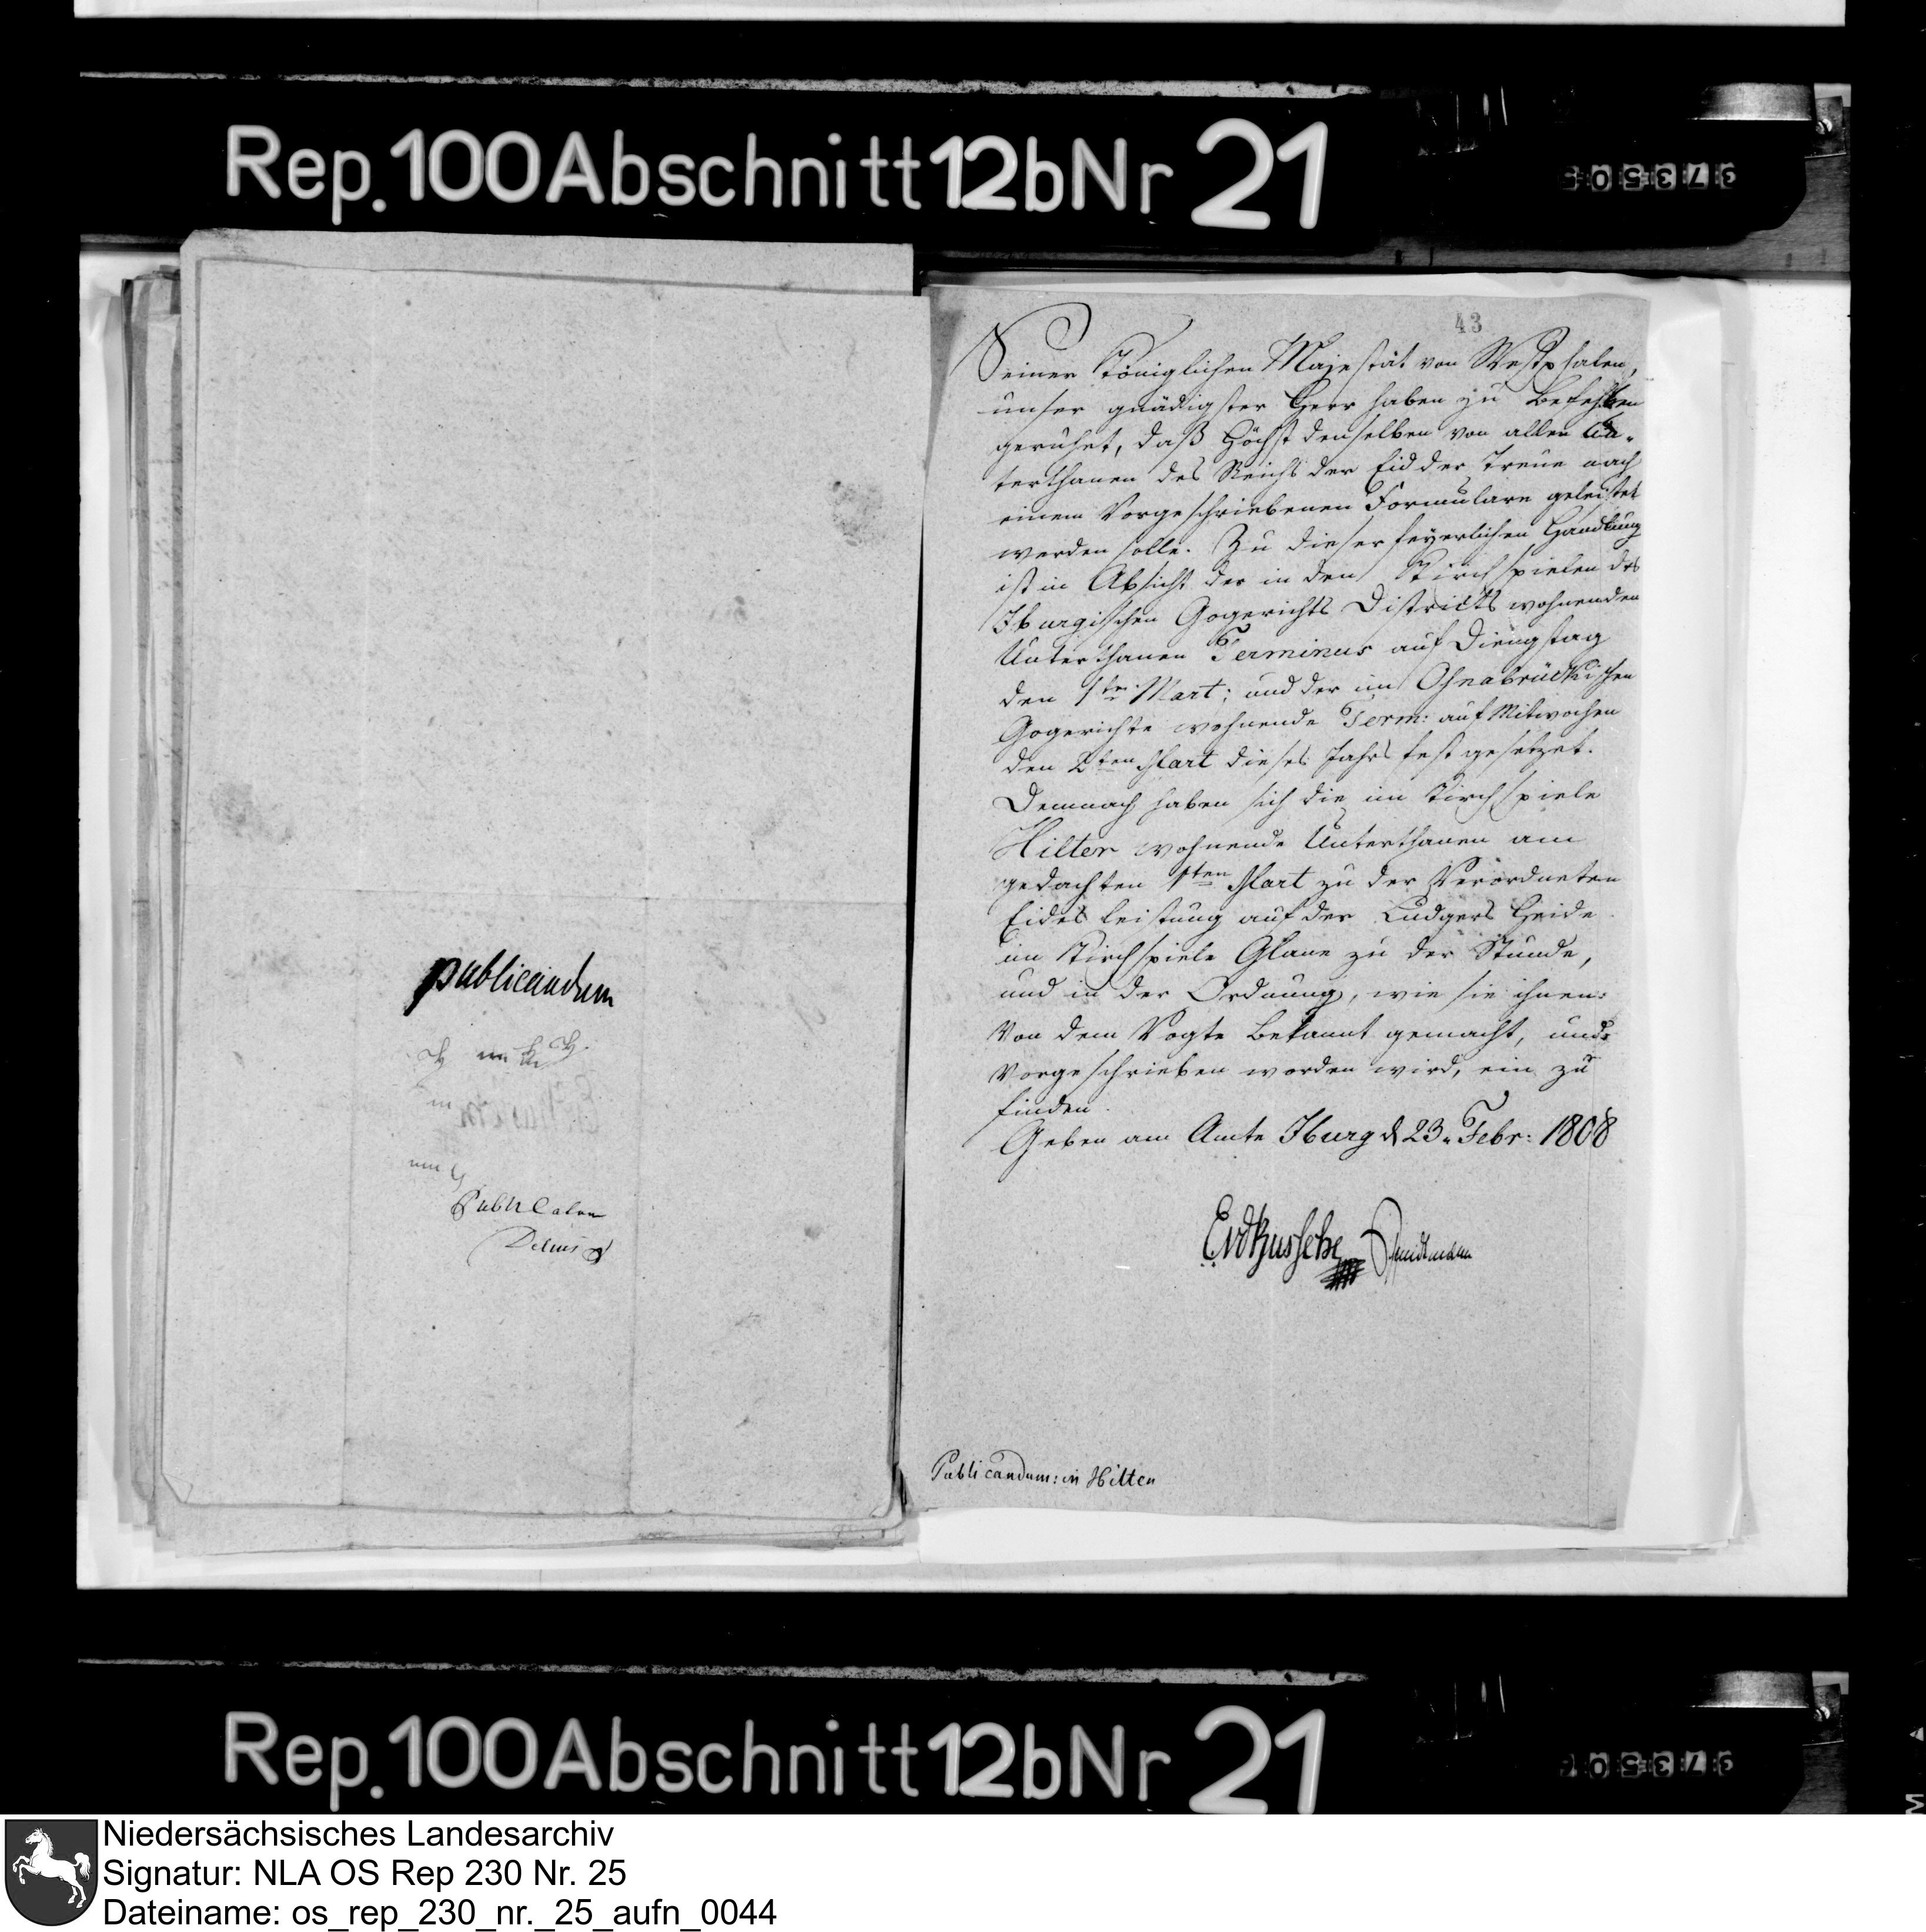 Rep. 100 Abschnitt 12b Nr 21
publicandum
Publ Calon
43
Seiner Königlichen Majestät von Westphalen,
unser gnädigster Herr haben zu befehlen
geruhet, daß Höchstdenselben von allen Un-
terthanen des Reichs der Eid der Treue nach
einem Vorgeschriebenen Formulare geleistet
werden solle. Zu dieser feyerlichen Handlung
ist in Absicht der in den Kirchspielen des
Iburgischen Gogerichts Districkts wohnenden
Unterthanen Terminus auf Dienstag
den 1ten Mart: und der im Osnabrückischen
Gogerichte wohnende Term: auf Mitwochen
den 2ten Mart dieses Jahrs fest gesetzet.
Demnach haben sich die im Kirchspiele
Hilter wohnende Unterthanen am
gedachten 1ten Mart zu der Verordneten
Eides leistung auf der Ludgers Heide
im Kirchspiele Glane zu der Stunde,
und in der Ordnung, wie sie ihnen
Von dem Vogte bekannt gemacht, und
Vorgeschrieben worden wird, ein zu
finden.
Geben am Amte Iburg d 23. Febr: 1808
EvdBussche
Publicandum: in Hilter
Rep. 100 Abschnitt 12b Nr 21
Niedersächsisches Landesarchiv
Signatur: NLA OS Rep 230 Nr. 25
Dateiname: os_rep_230_nr._25_aufn_0044